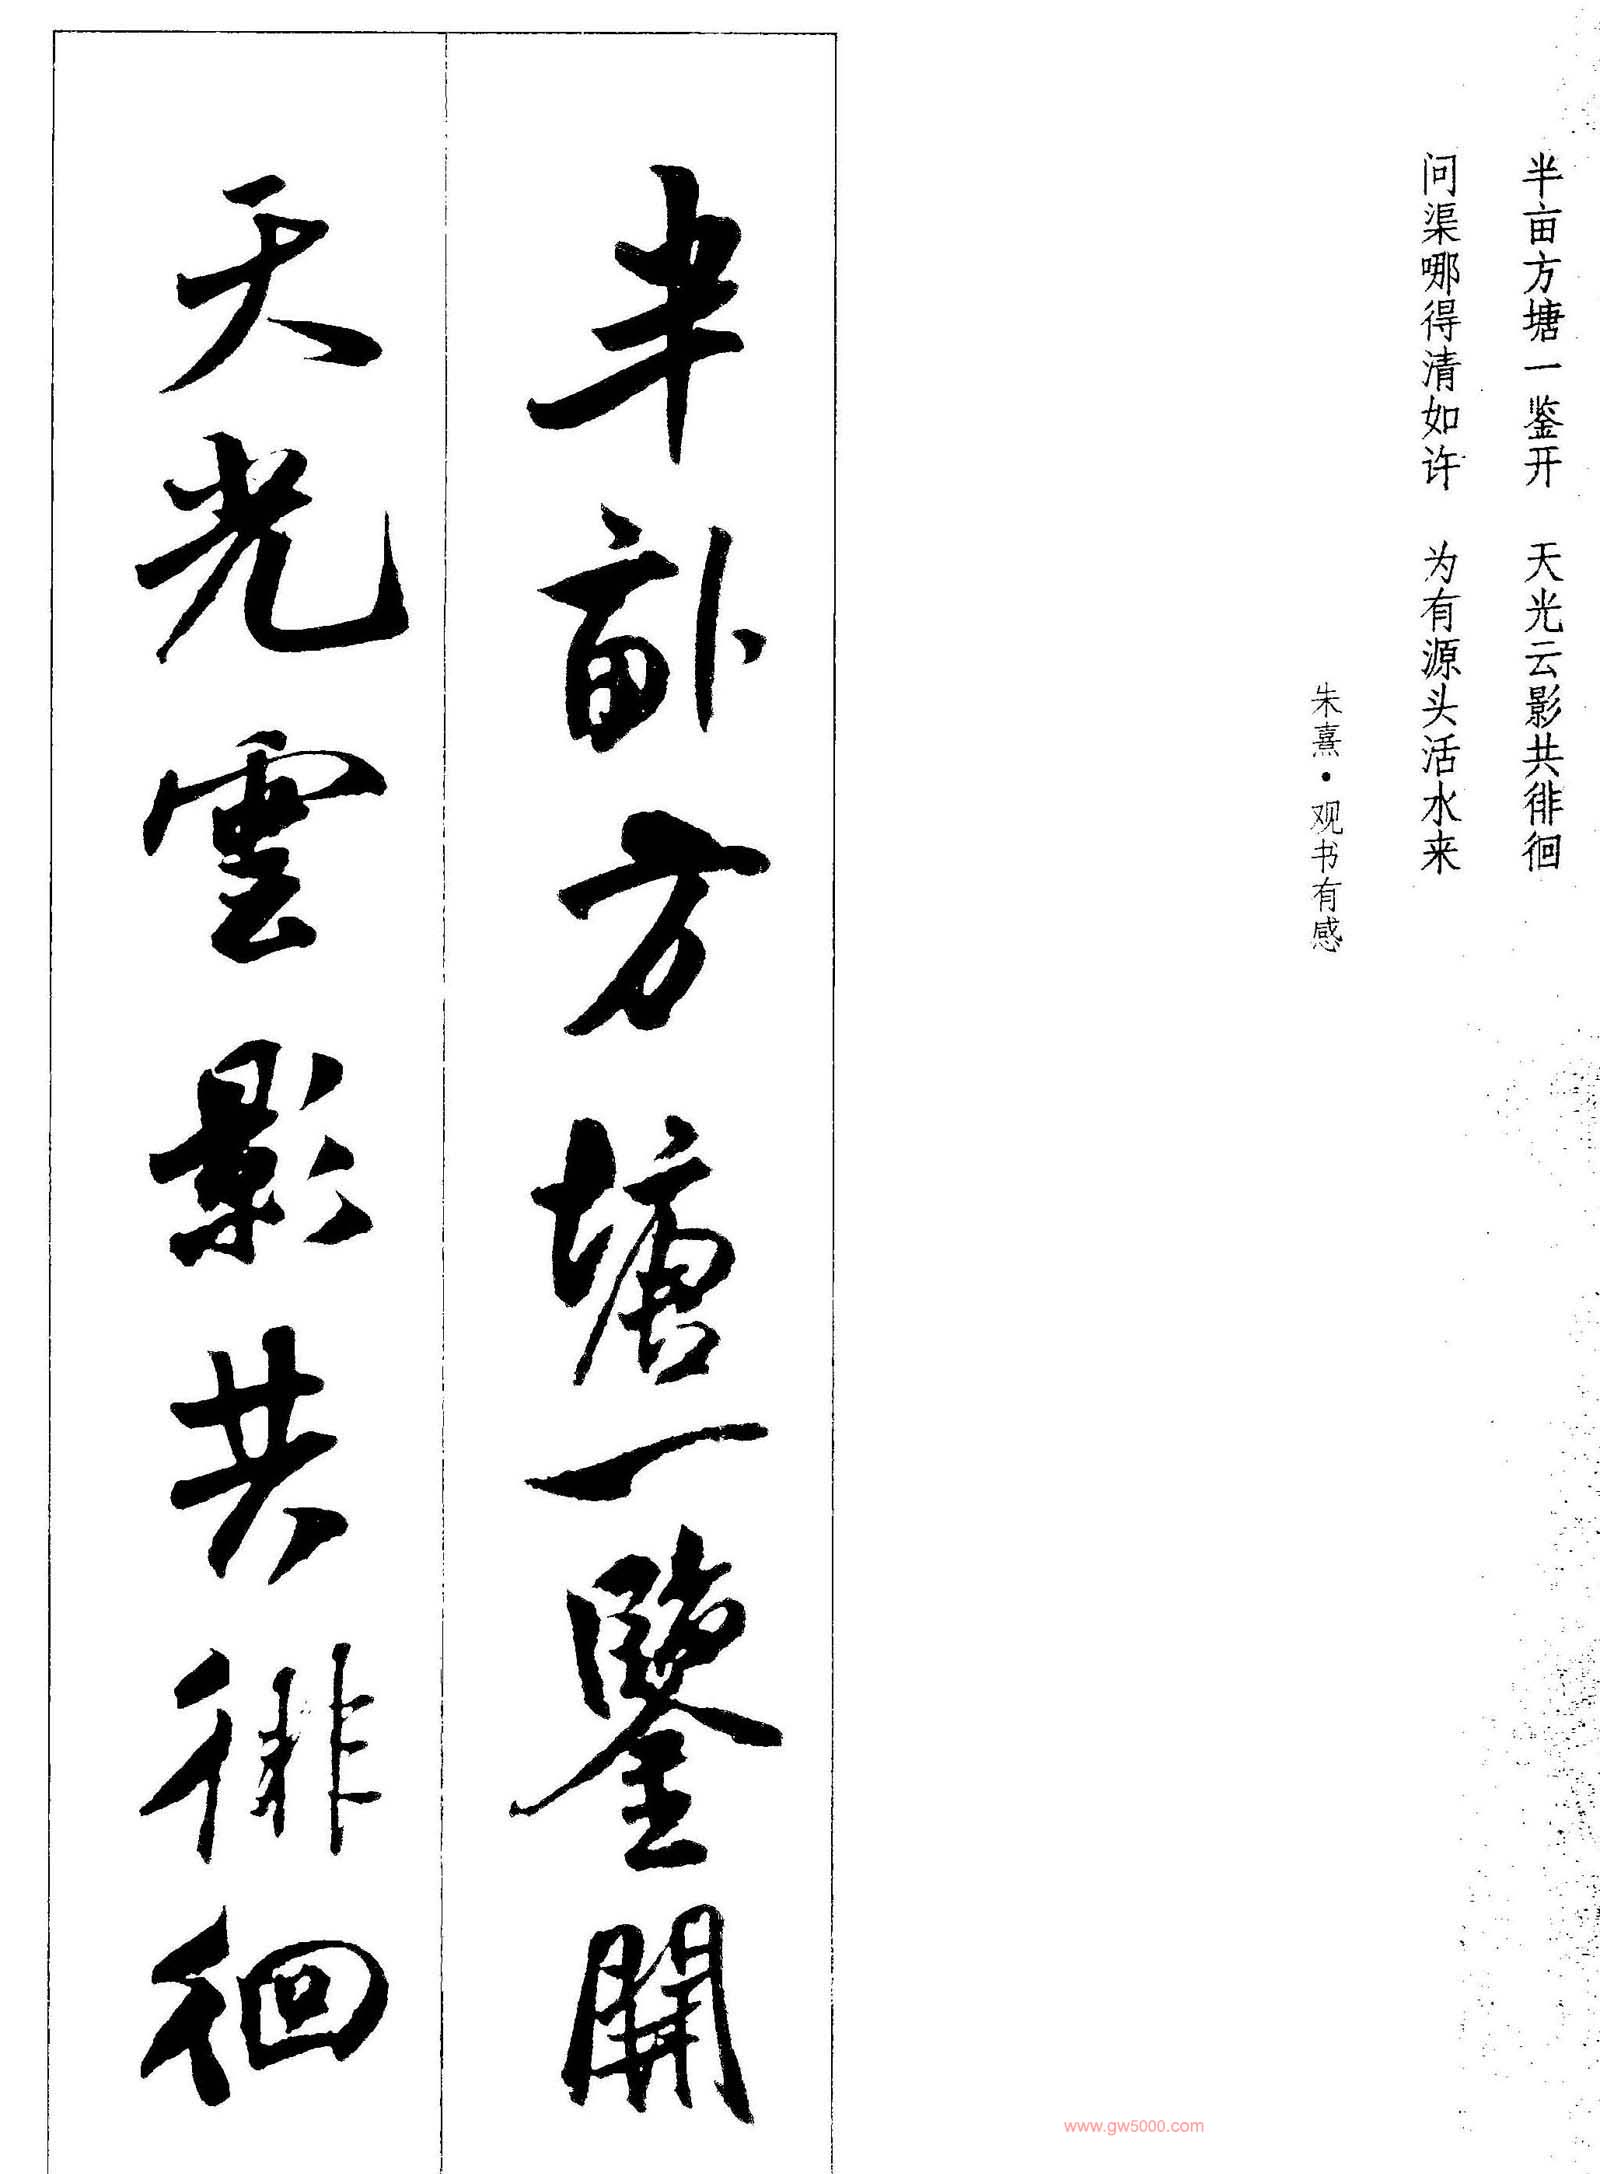 半亩方塘一鉴开　天光云影共徘徊
问渠哪得清如许　为有源头活水来
朱熹·观书有感
半畝方塘一鑒開
天光雲影共徘徊
www.gw5000.com